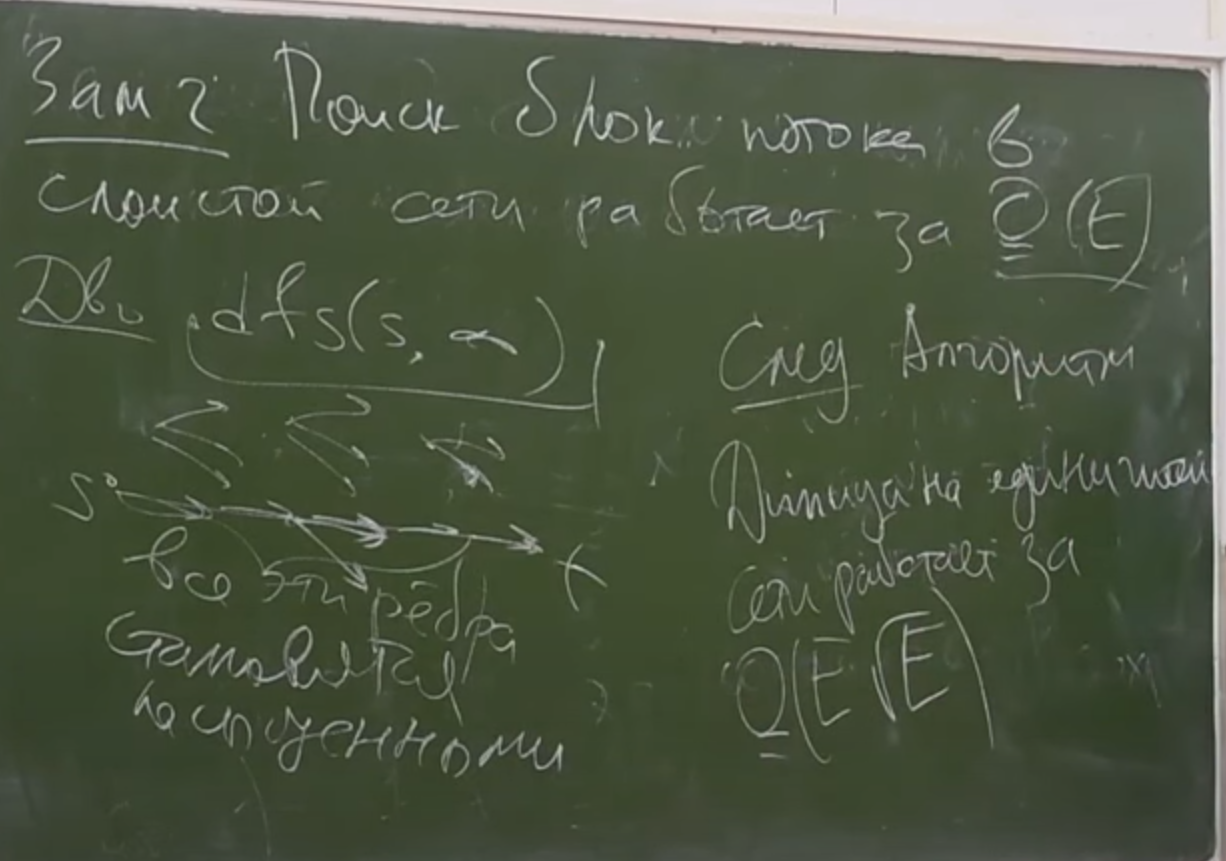 Зам 2 Поиск блок. потока в
слоистой сети работает за O(E)
Д-во dfs(s, ∞)
s t
все эти рёбра
становятся
насыщенными
След Алгоритм
Диница на единичной
сети работает за
O(E√E)